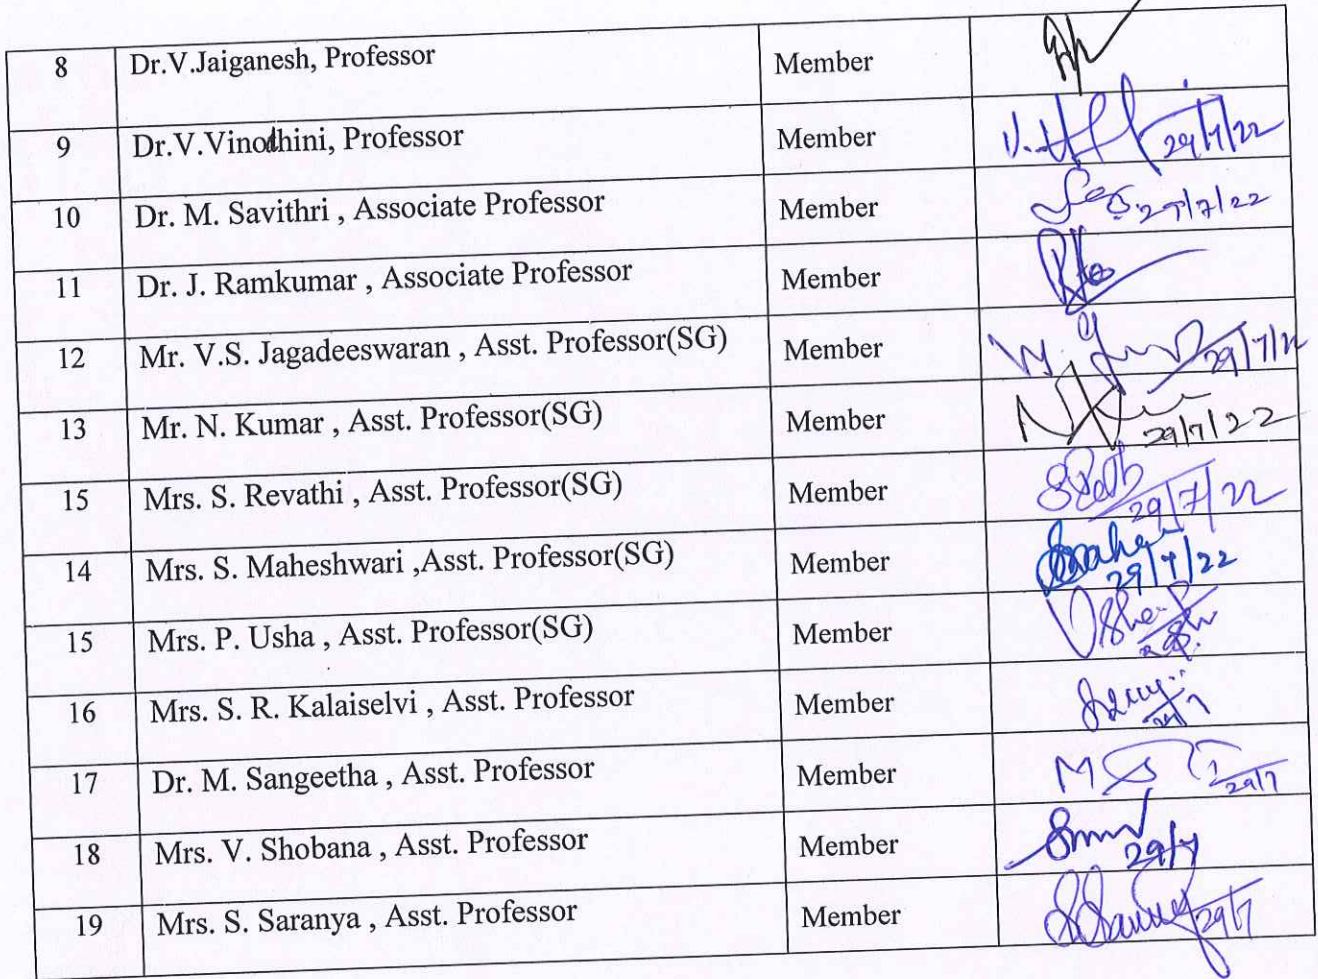 8 Dr.V.Jaiganesh, Professor Member
9 Dr.V.Vinothini, Professor Member 29/7/22
10 Dr. M. Savithri , Associate Professor Member 29/7/22
11 Dr. J. Ramkumar , Associate Professor Member
12 Mr. V.S. Jagadeeswaran , Asst. Professor(SG) Member 29/7/22
13 Mr. N. Kumar , Asst. Professor(SG) Member 29/7/22
15 Mrs. S. Revathi , Asst. Professor(SG) Member 29/7/22
14 Mrs. S. Maheshwari ,Asst. Professor(SG) Member 29/7/22
15 Mrs. P. Usha , Asst. Professor(SG) Member
16 Mrs. S. R. Kalaiselvi , Asst. Professor Member 29/7
17 Dr. M. Sangeetha , Asst. Professor Member 29/7
18 Mrs. V. Shobana , Asst. Professor Member 29/7
19 Mrs. S. Saranya , Asst. Professor Member 29/7